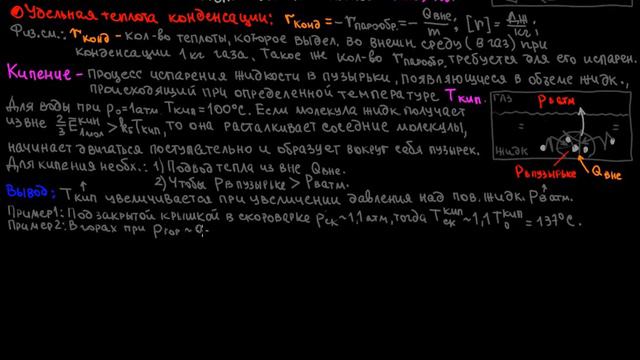 Удельная теплота конденсации: rконд = -rпарообр. = - Qвне/m, [r] = Дж/кг.
Физ.см.: rконд - кол-во теплоты, которое выдел. во внешн среду (в газ) при
конденсации 1 кг газа. Такое же кол-во rпарообр. требуется для его испарен.
Кипение - процесс испарения жидкости в пузырьки, появляющиеся в объеме жидк.,
происходящий при определенной температуре Tкип.
Для воды при p₀=1атм. Tкип=100°C. Если молекула жидк получает
извне 2/3 E кин 1мол > kБTкип, то она расталкивает соседние молекулы,
начинает двигаться поступательно и образует вокруг себя пузырек.
Для кипения необх.: 1) Подвод тепла из вне Qвне.
2) Чтобы Pв пузырьке > Pватм.
ГАЗ Pватм
ЖИДК
Pв пузырьке Qвне
Вывод: Tкип увеличивается при увеличении давления над пов. жидк. Pватм.
Пример1: Под закрытой крышкой в скороварке pск~1,1 атм, тогда Tск кип ~ 1,1 T₀ кип = 137°C.
Пример2: В горах при pгор ~